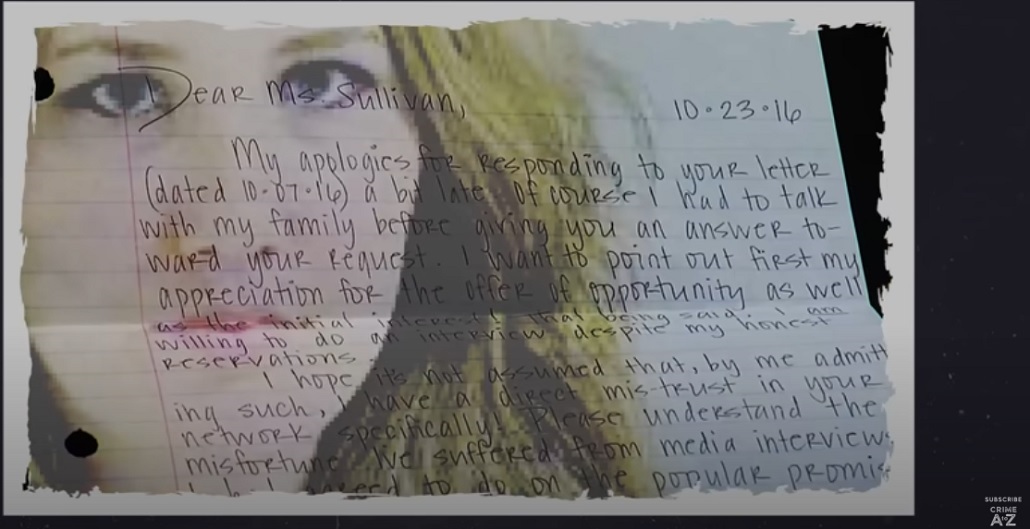 Dear Ms. Sullivan,
10·23·16
My apologies for responding to your letter
(dated 10-07-16) a bit late. Of course I had to talk
with my family before giving you an answer to-
ward your request. I want to point out first my
appreciation for the offer of opportunity as well
as the initial interest! that being said, I am
willing to do an interview despite my honest
reservations.
I hope it's not assumed that, by me admitt
ing such, I have a direct mis-trust in your
network specifically! Please understand the
misfortune I've suffered from media interviews
to do on the popular promis
SUBSCRIBE
CRIME
A to Z